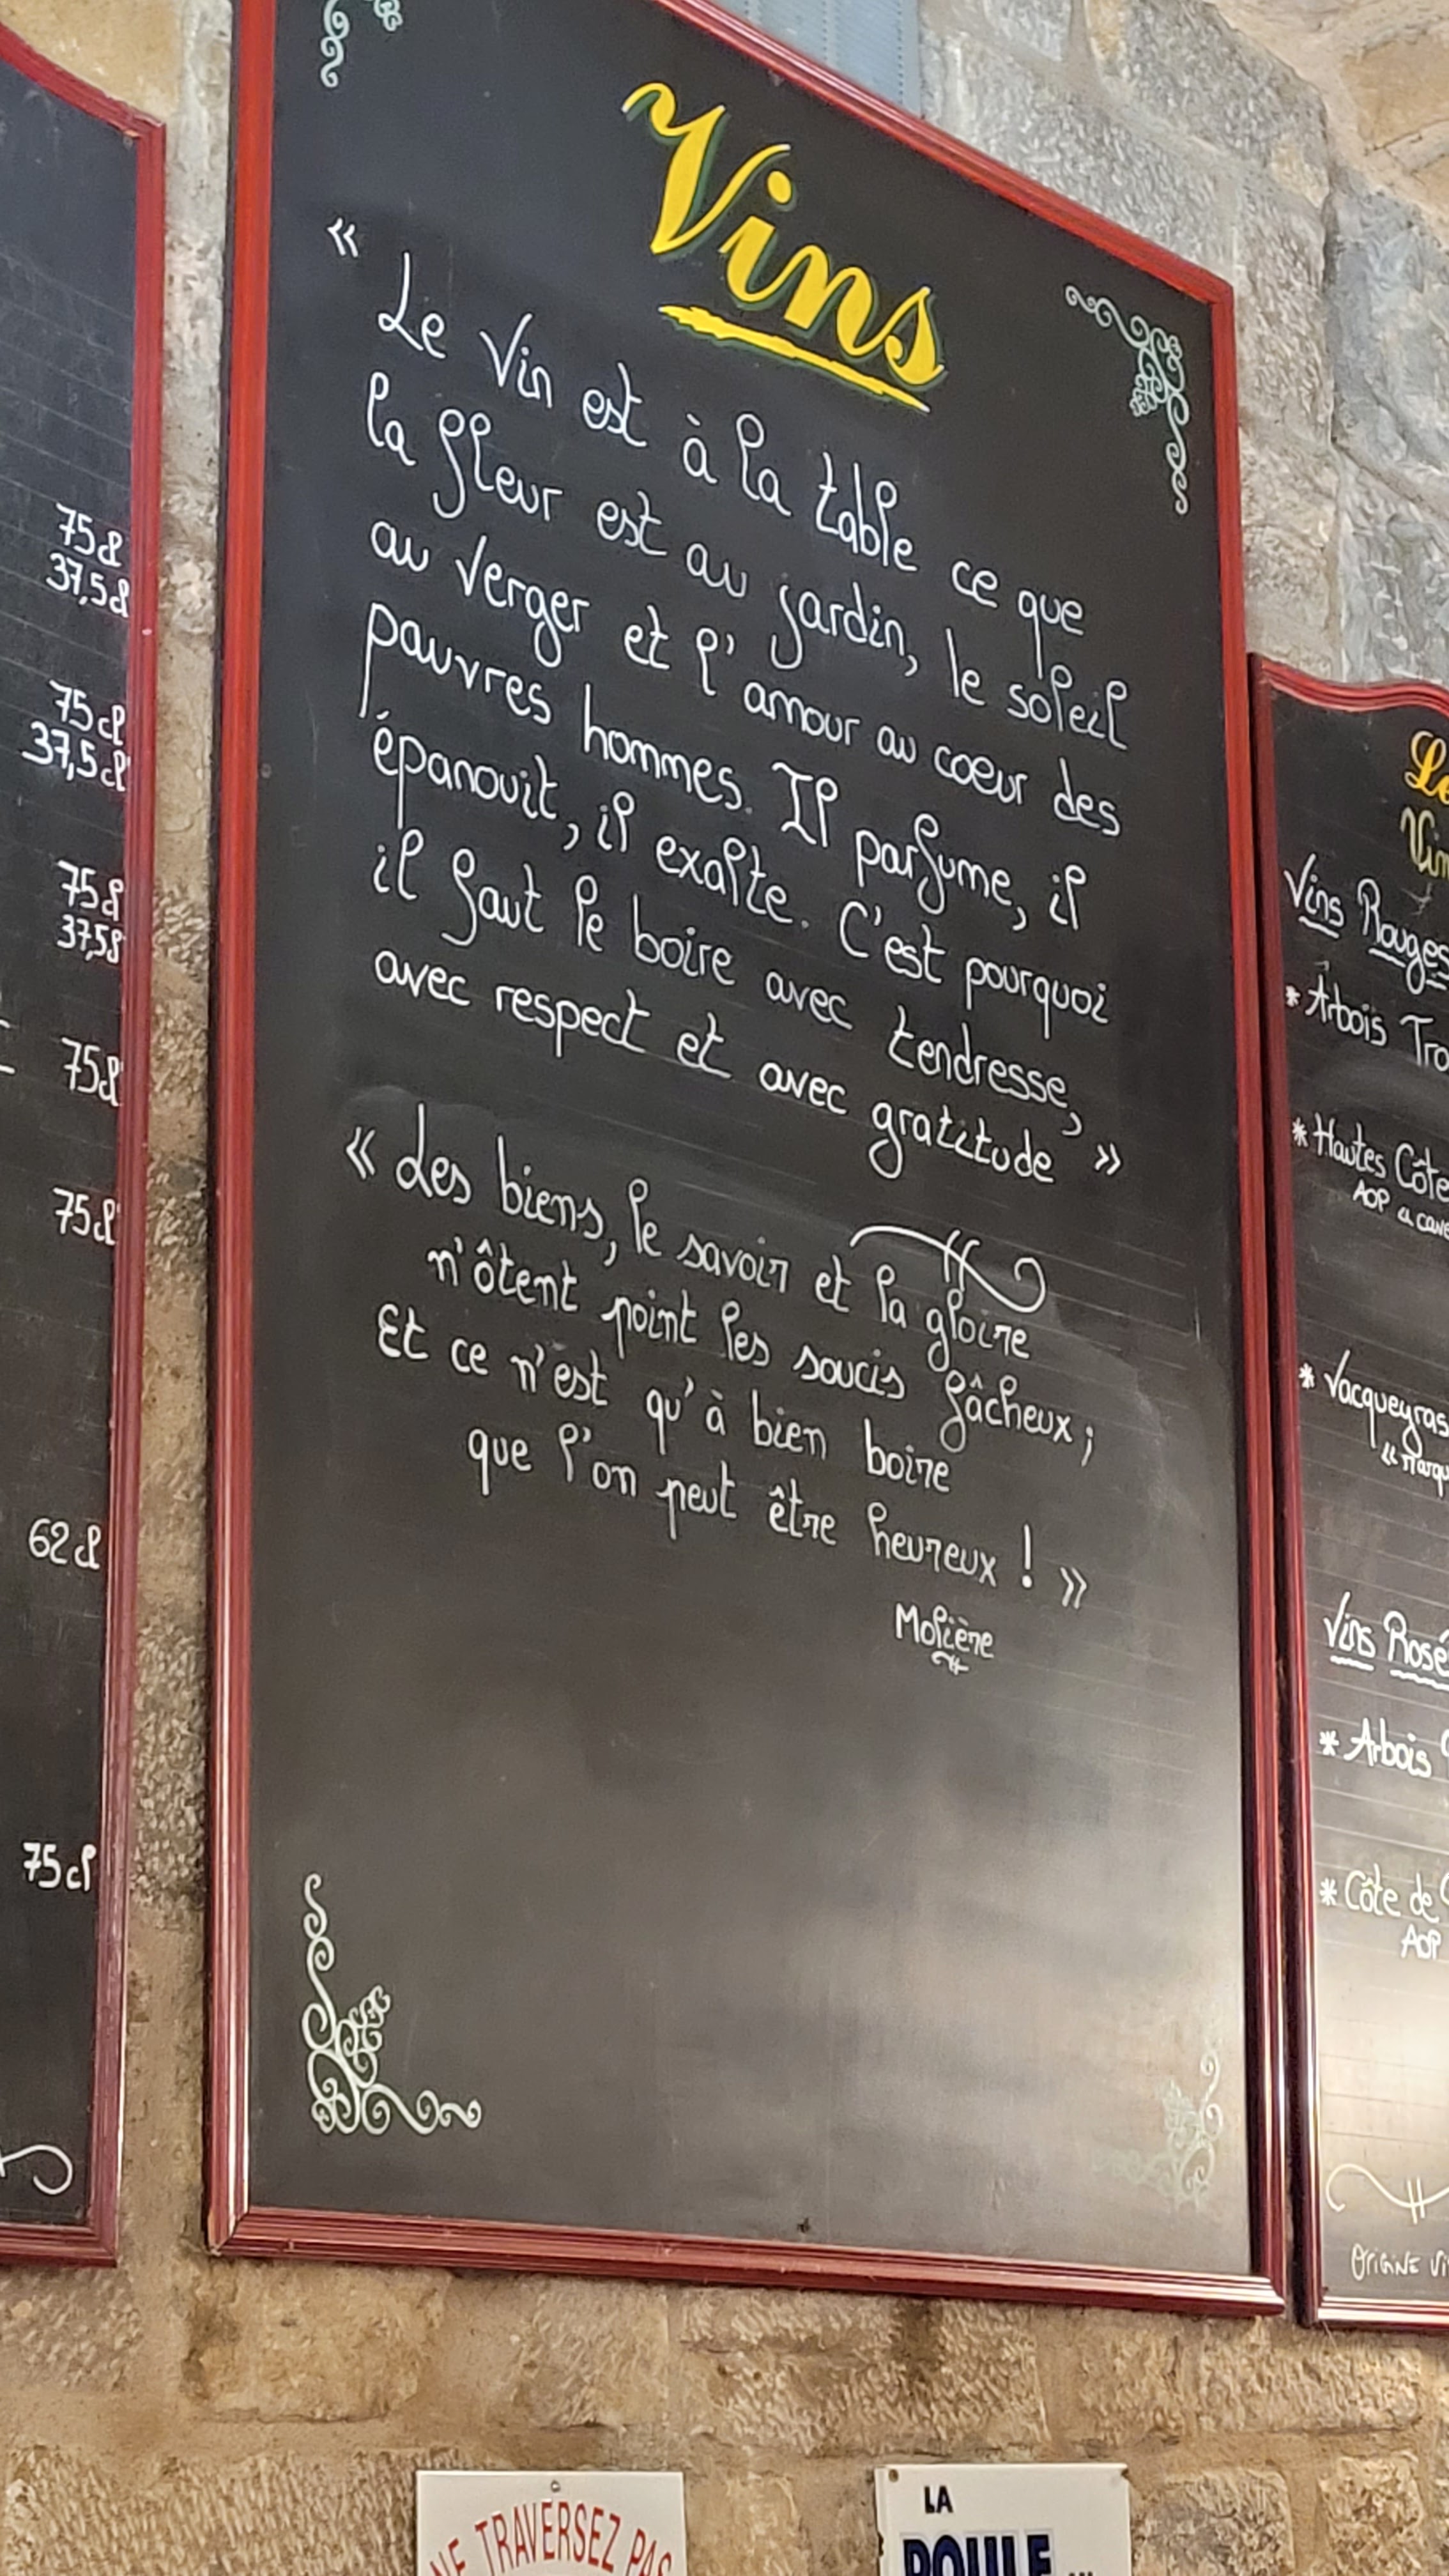 75cl
37,5cl
75cl
37,5cl
75cl
37,5cl
75cl
75cl
62cl
75cl
Vins
« Le Vin est à la table ce que
la fleur est au jardin, le soleil
au verger et l'amour au coeur des
pauvres hommes. Il parfume, il
épanouit, il exalte. C'est pourquoi
il faut le boire avec tendresse,
avec respect et avec gratitude »
« Les biens, le savoir et la gloire
n'ôtent point les soucis fâcheux ;
Et ce n'est qu'à bien boire
que l'on peut être heureux ! »
Molière
Le
Vin
Vins Rouges
* Arbois Tro
* Hautes Côte
AOP
* Vacqueyras
Vins Rosé
* Arbois
* Côte de
AOP
NE TRAVERSEZ PAS
LA
POULE